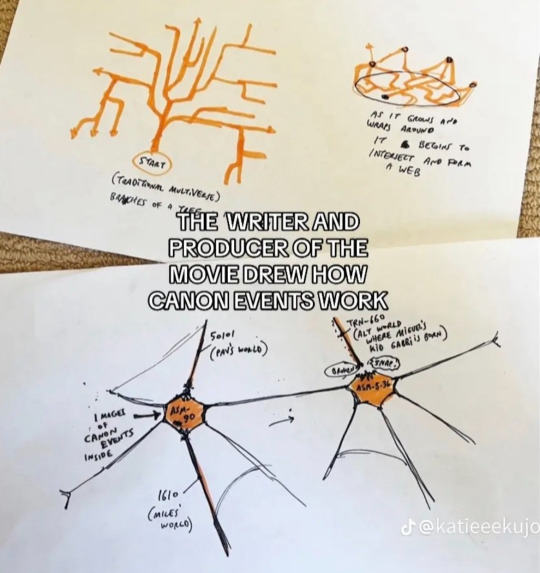 START
(TRADITIONAL MULTIVERSE)
BRANCHES OF A TREE
AS IT GROWS AND
WRAPS AROUND
IT BEGINS TO
INTERSECT AND FORM
A WEB
THE WRITER AND
PRODUCER OF THE
MOVIE DREW HOW
CANON EVENTS WORK
50101
(PAV'S WORLD)
TRN-660
(ALT WORLD
WHERE MIGUEL'S
KID GABRI IS BORN)
BROKEN
SNAP!
ASM-
90
ASM-S-36
IMAGES
OF
CANON
EVENTS
INSIDE
1610
(MILES'
WORLD)
@katieeekujo